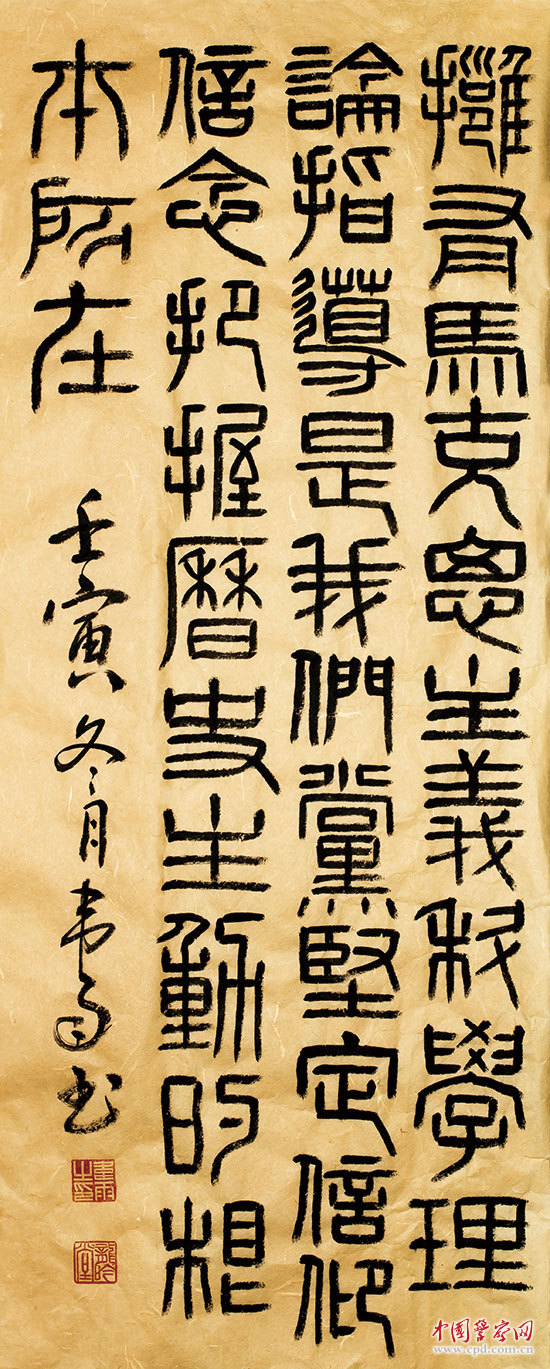 擁有馬克思主義科學理
論指導是我們黨堅定信仰
信念把握曆史主動的根
本所在
壬寅冬月韦书
中国警察网
www.cpd.com.cn